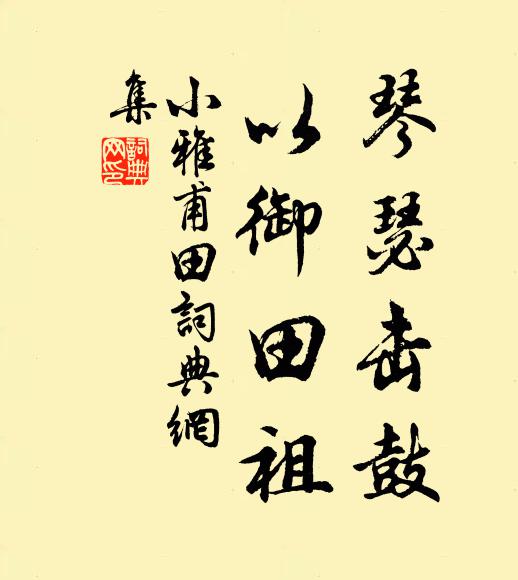 琴瑟击鼓
以御田祖
小雅甫田詞典網
集
詞典
网印